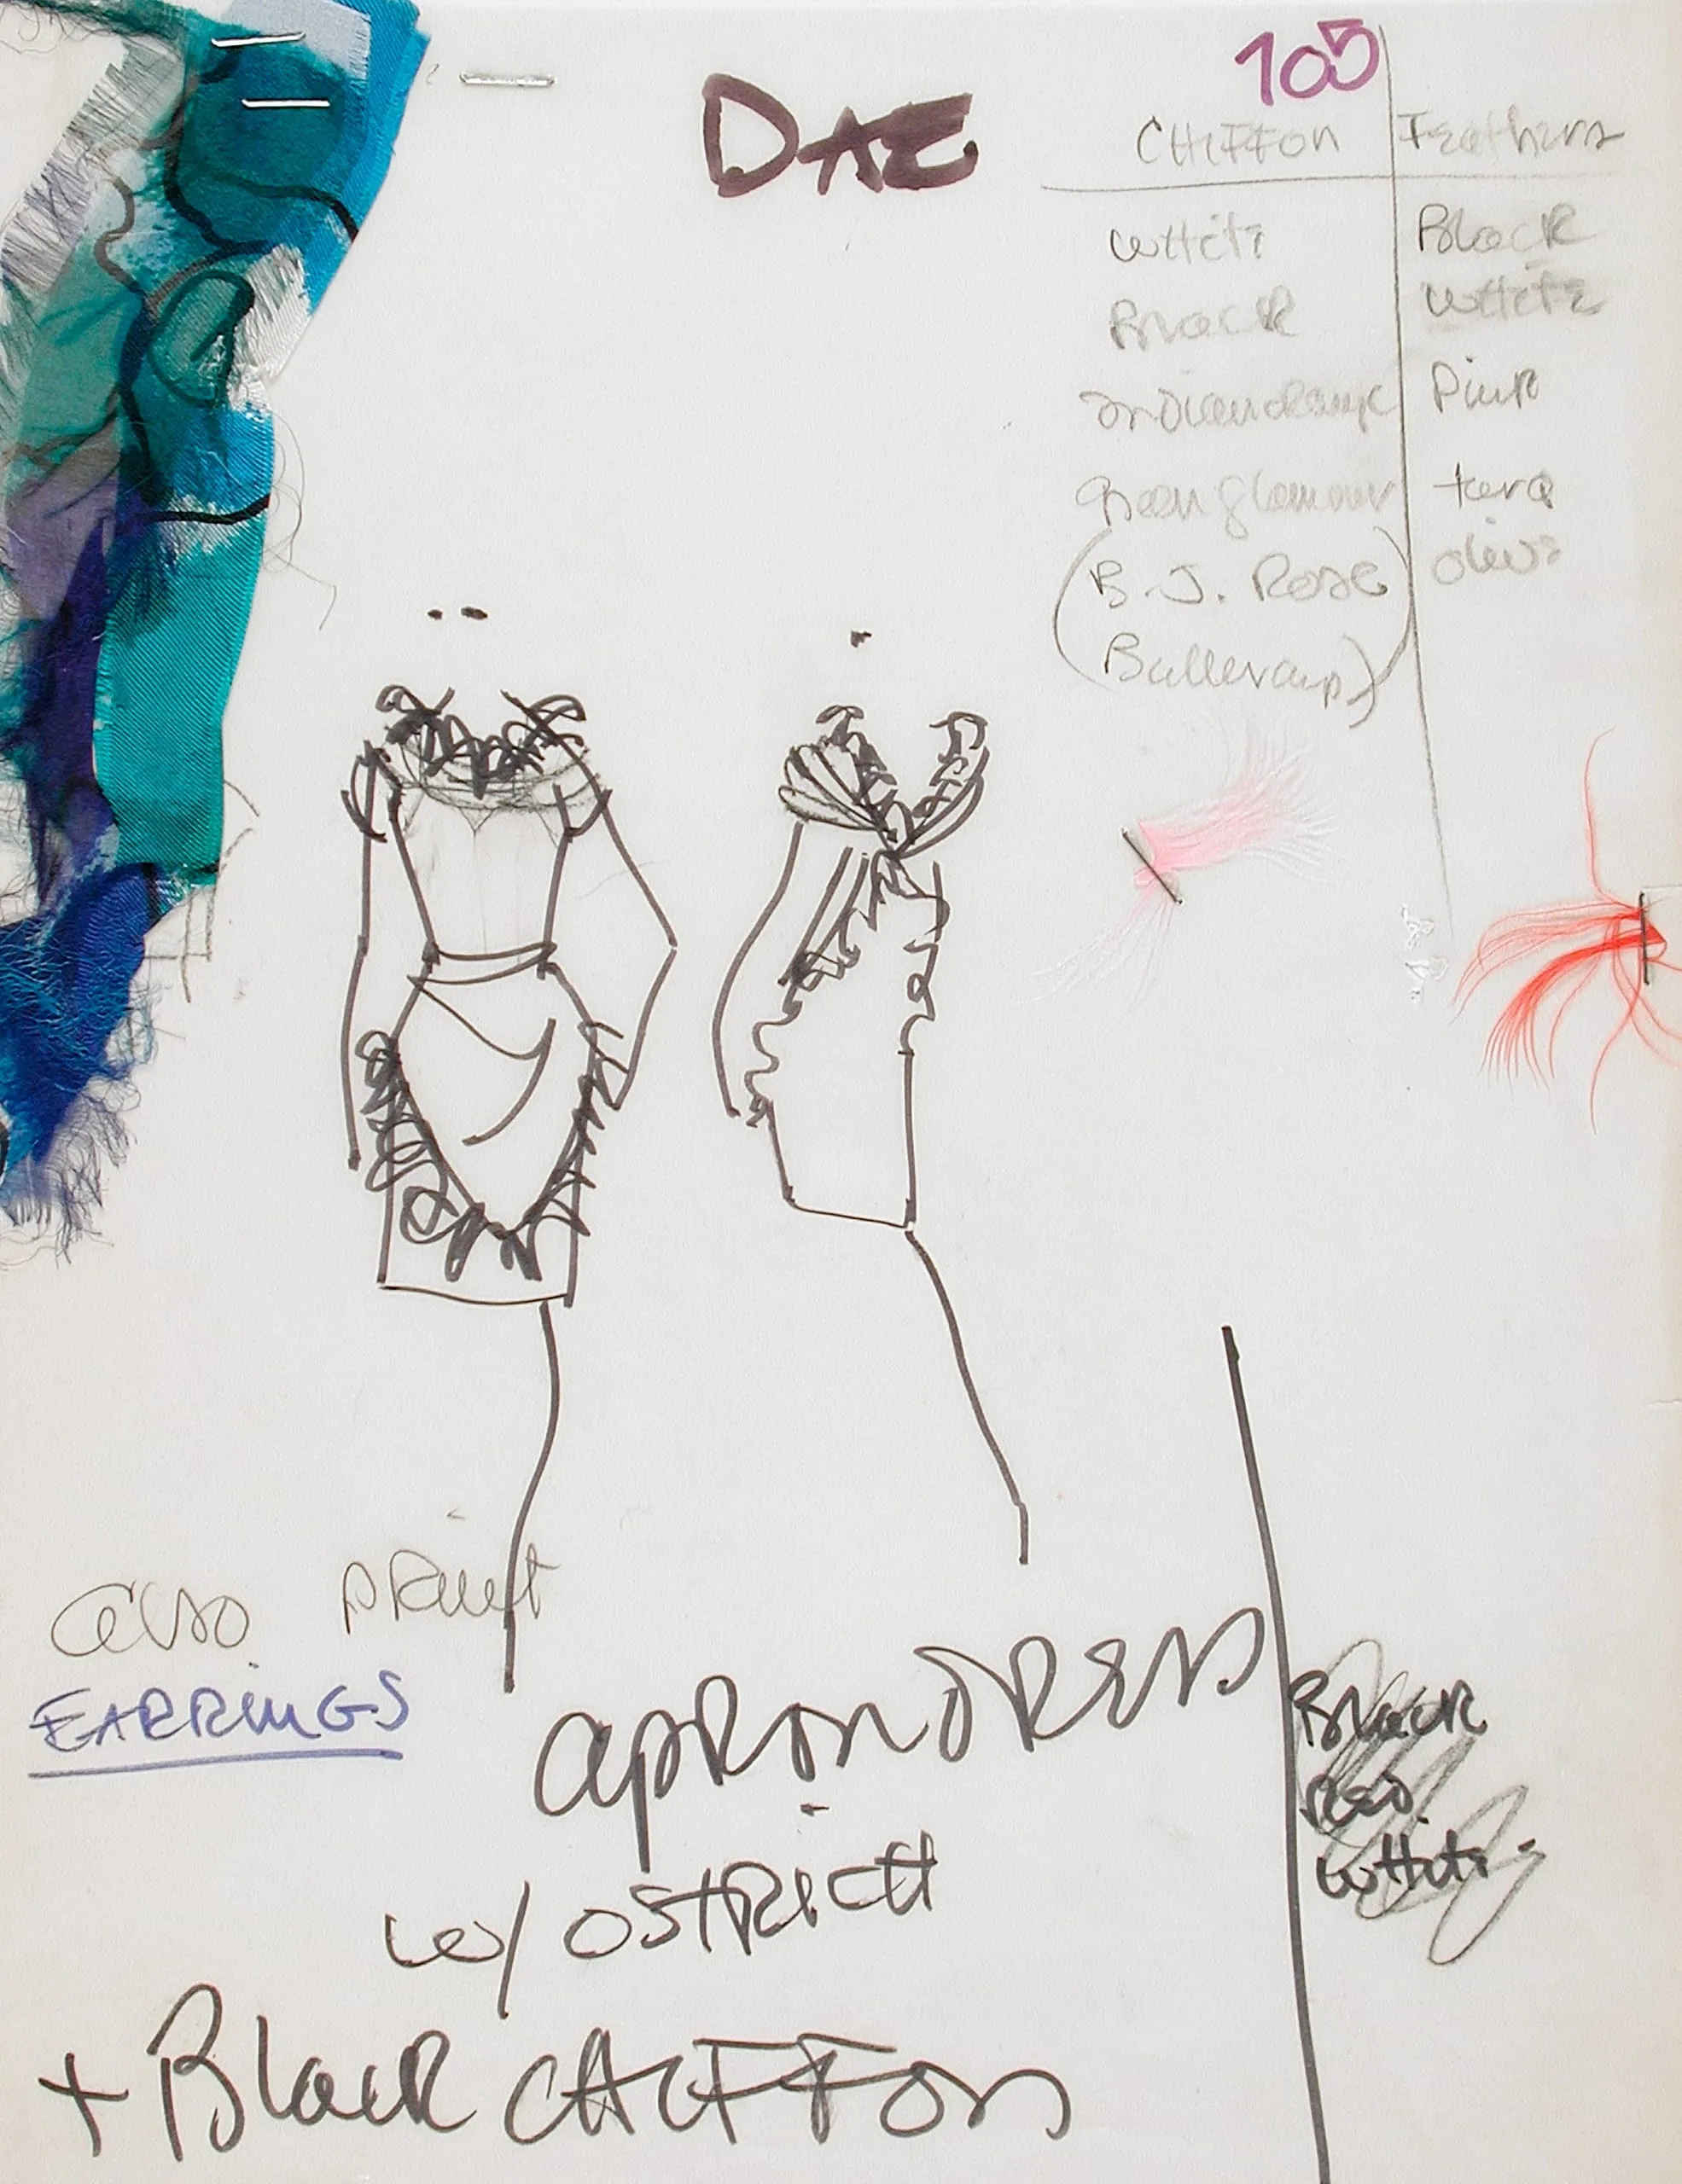 105
DAE
CHIFFON Feathers
WHITE Black
Black WHITE
Pink
green glamour
olive
(B. J. Rose
also print
EARRINGS
apron DRESS
w/ OSTRICH
+ Black CHIFFON
Black
Red
WHITE